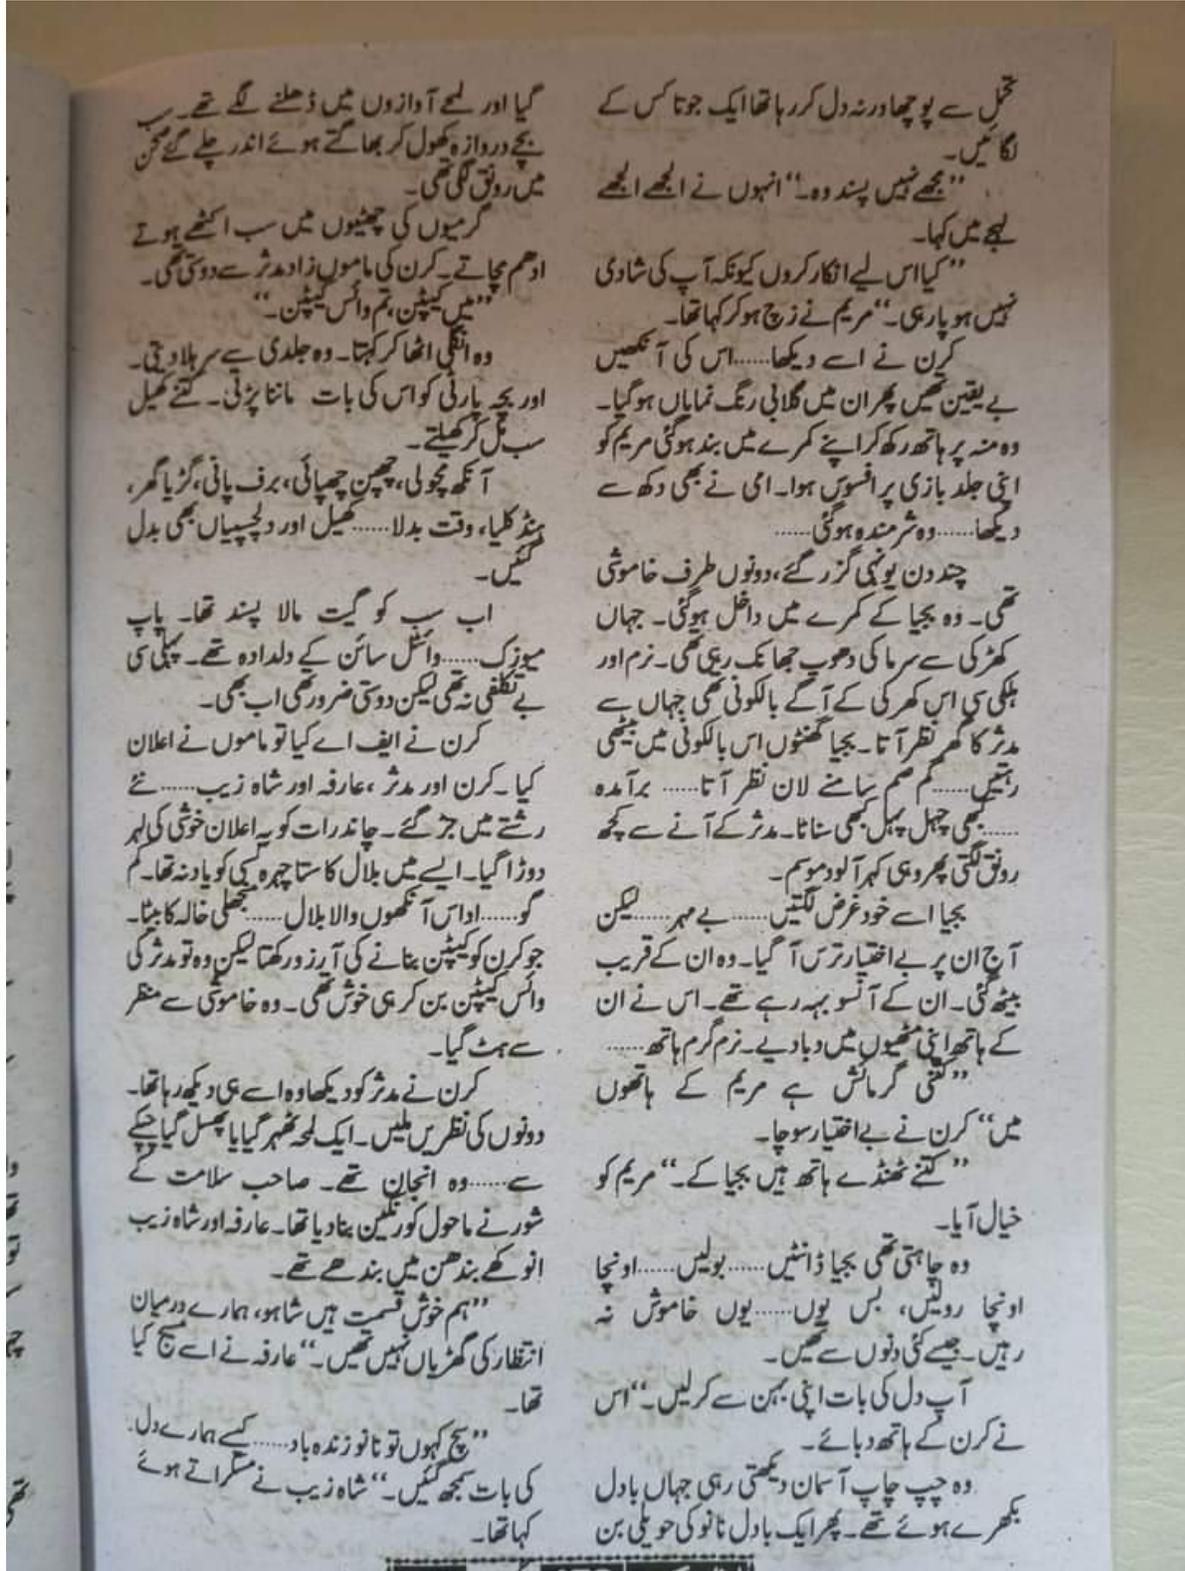 تحمل سے پوچھا ورنہ دل کر رہا تھا ایک جوتا کس کے
لگائیں۔
”مجھے نہیں پسند وہ۔“ انہوں نے الجھے الجھے
لہجے میں کہا۔
”کیا اس لیے انکار کروں کیونکہ آپ کی شادی
نہیں ہو پا رہی۔“ مریم نے زچ ہو کر کہا تھا۔
کرن نے اسے دیکھا......اس کی آنکھیں
بے یقین تھیں پھر ان میں گلابی رنگ نمایاں ہو گیا۔
وہ منہ پر ہاتھ رکھ کر اپنے کمرے میں بند ہو گئی مریم کو
اپنی جلد بازی پر افسوس ہوا۔ امی نے بھی دکھ سے
دیکھا......وہ شرمندہ ہو گئی......
چند دن یونہی گزر گئے، دونوں طرف خاموشی
تھی۔ وہ بجیا کے کمرے میں داخل ہو گئی۔ جہاں
کھڑکی سے سرما کی دھوپ جھانک رہی تھی۔ نرم اور
ہلکی سی اس کھڑکی کے آگے بالکونی تھی جہاں سے
مدثر کا گھر نظر آتا۔ بجیا گھنٹوں اس بالکونی میں بیٹھی
رہتیں......گم صم سامنے لان نظر آتا...... برآمدہ
......کبھی چہل پہل کبھی سناٹا۔ مدثر کے آنے سے کچھ
رونق لگتی پھر وہی کہر آلود موسم۔
بجیا اسے خود غرض لگتیں......بے مہر......لیکن
آج ان پر بے اختیار ترس آ گیا۔ وہ ان کے قریب
بیٹھ گئی۔ ان کے آنسو بہہ رہے تھے۔ اس نے ان
کے ہاتھ اپنی مٹھیوں میں دبا دیے۔ نرم گرم ہاتھ......
”کتنی گرمائش ہے مریم کے ہاتھوں
میں“ کرن نے بے اختیار سوچا۔
”کتنے ٹھنڈے ہاتھ ہیں بجیا کے۔“ مریم کو
خیال آیا۔
وہ چاہتی تھی بجیا ڈانٹیں......بولیں......اونچا
اونچا روئیں، بس یوں......یوں خاموش نہ
رہیں۔ جیسے کئی دنوں سے تھیں۔
آپ دل کی بات اپنی بہن سے کر لیں۔“ اس
نے کرن کے ہاتھ دبائے۔
وہ چپ چاپ آسمان دیکھتی رہی جہاں بادل
بکھرے ہوئے تھے۔ پھر ایک بادل نانو کی حویلی بن
گیا اور لمحے آوازوں میں ڈھلنے لگے تھے۔ سب
بچے دروازہ کھول کر بھاگتے ہوئے اندر چلے گئے صحن
میں رونق لگی تھی۔
گرمیوں کی چھٹیوں میں سب اکٹھے ہوتے
ادھم مچاتے۔ کرن کی ماموں زاد مدثر سے دوستی تھی۔
”میں کیپٹن، تم وائس کیپٹن۔“
وہ انگلی اٹھا کر کہتا۔ وہ جلدی سے سر ہلا دیتی۔
اور بچہ پارٹی کو اس کی بات ماننا پڑتی۔ کتنے کھیل
سب مل کر کھیلتے۔
آنکھ مچولی، چھپن چھپائی، برف پانی، گڑیا گھر،
ہنڈ کلیا، وقت بدلا......کھیل اور دلچسپیاں بھی بدل
گئیں۔
اب سب کو گیت مالا پسند تھا۔ پاپ
میوزک......وائٹل سائن کے دلدادہ تھے۔ پہلی سی
بے تکلفی نہ تھی لیکن دوستی ضرور تھی اب بھی۔
کرن نے ایف اے کیا تو ماموں نے اعلان
کیا۔ کرن اور مدثر، عارفہ اور شاہ زیب......نئے
رشتے میں جڑ گئے۔ چاند رات کو یہ اعلان خوشی کی لہر
دوڑا گیا۔ ایسے میں بلال کا ستا چہرہ کسی کو یاد نہ تھا۔ کم
گو......اداس آنکھوں والا بلال......منجھلی خالہ کا بیٹا۔
جو کرن کو کیپٹن بنانے کی آرزو رکھتا لیکن وہ تو مدثر کی
وائس کیپٹن بن کر ہی خوش تھی۔ وہ خاموشی سے منظر
سے ہٹ گیا۔
کرن نے مدثر کو دیکھا وہ اسے ہی دیکھ رہا تھا۔
دونوں کی نظریں ملیں۔ ایک لمحہ ٹھہر گیا یا پھسل گیا چپکے
سے......وہ انجان تھے۔ صاحب سلامت کے
شور نے ماحول کو رنگین بنا دیا تھا۔ عارفہ اور شاہ زیب
انوکھے بندھن میں بندھے تھے۔
”ہم خوش قسمت ہیں شاہو، ہمارے درمیان
انتظار کی گھڑیاں نہیں تھیں۔“ عارفہ نے اسے میسج کیا
تھا۔
”سچ کہوں تو نانو زندہ باد......کیسے ہمارے دل
کی بات سمجھ گئیں۔“ شاہ زیب نے مسکراتے ہوئے
کہا تھا۔